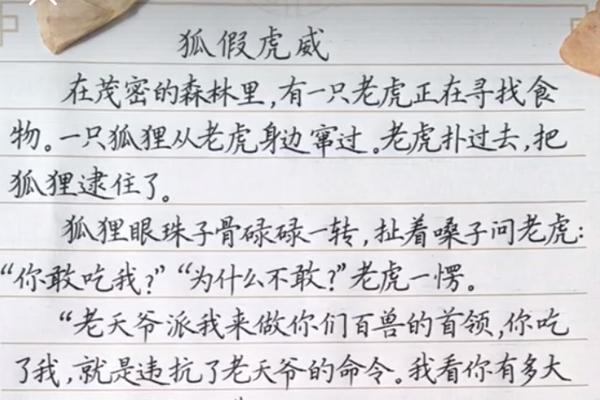 狐假虎威
在茂密的森林里,有一只老虎正在寻找食
物。一只狐狸从老虎身边窜过。老虎扑过去,把
狐狸逮住了。
狐狸眼珠子骨碌碌一转,扯着嗓子问老虎:
“你敢吃我?”“为什么不敢?”老虎一愣。
“老天爷派我来做你们百兽的首领,你吃
了我,就是违抗了老天爷的命令。我看你有多大